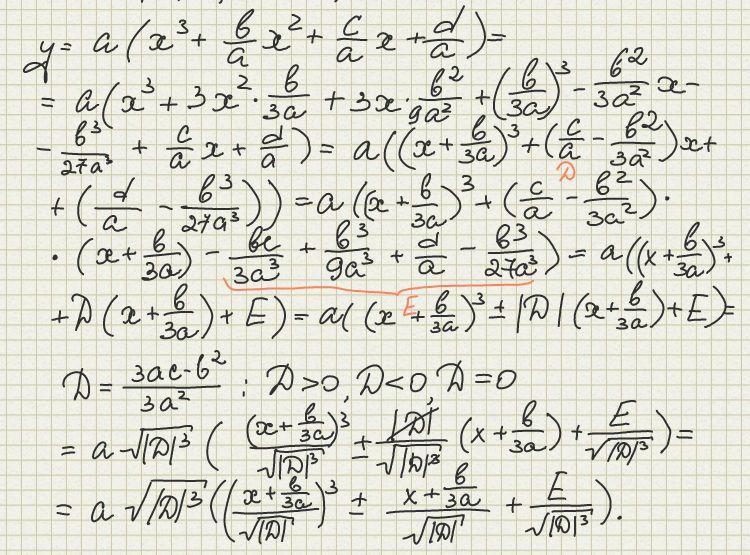 y = a (x³ + в/a x² + c/a x + d/a) =
= a(x³ + 3x² · в/3a + 3x · в²/9a² + (в/3a)³ - в²/3a² x -
- в³/27a³ + c/a x + d/a) = a((x + в/3a)³ + (c/a - в²/3a²)x +
D
+ (d/a - в³/27a³)) = a((x + в/3a)³ + (c/a - в²/3a²) ·
· (x + в/3a) - вc/3a³ + в³/9a³ + d/a - в³/27a³) = a((x + в/3a)³ +
E
+ D(x + в/3a) + E) = a((x + в/3a)³ ± |D|(x + в/3a) + E) =
D = 3ac-в²/3a² : D>0, D<0, D=0
= a √|D|³ ((x + в/3a)³/√|D|³ ± |D|/√|D|³ (x + в/3a) + E/√|D|³) =
= a √|D|³ ((x + в/3a/√|D|)³ ± x + в/3a/√|D| + E/√|D|³).